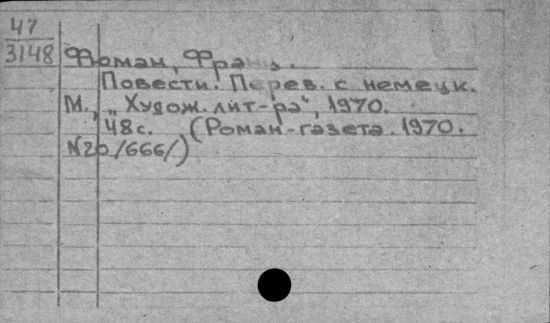 47
3148
Фюман, Франц.
Повести. Перев. с немецк.
М., „Худож. лит-ра", 1970.
48с. (Роман-газета. 1970.
№20/666/)